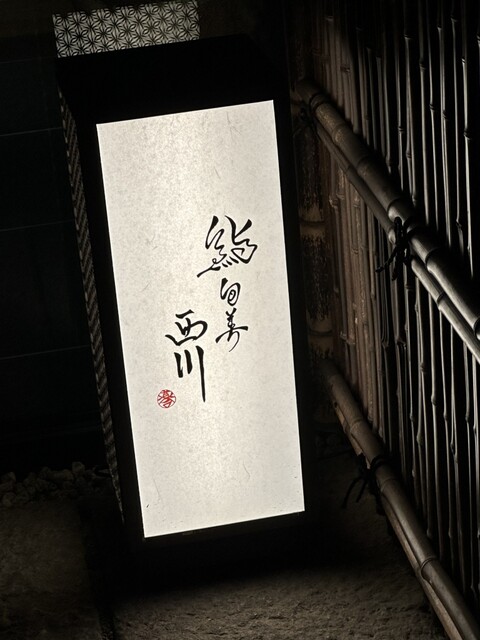 鮨 旬美
西川